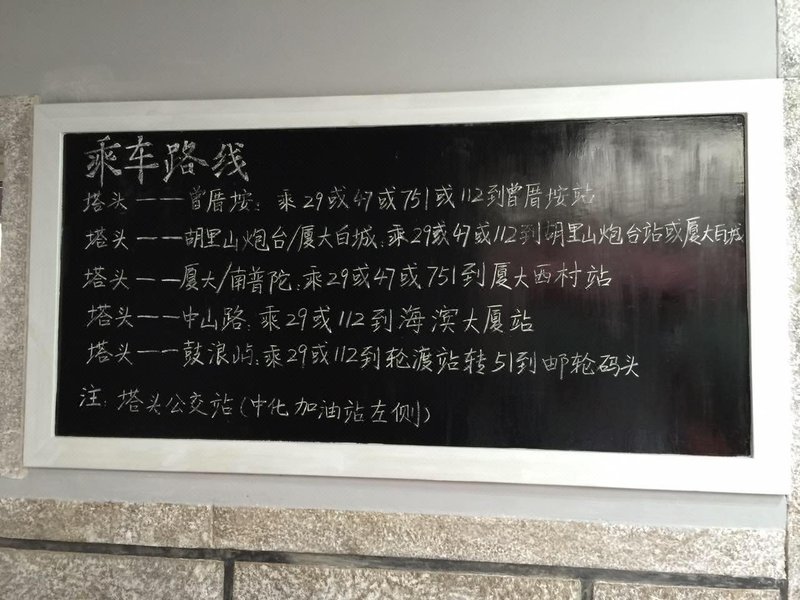 乘车路线
塔头——曾厝垵:乘29或47或751或112到曾厝垵站
塔头——胡里山炮台/厦大白城:乘29或47或112到胡里山炮台站或厦大白城
塔头——厦大/南普陀:乘29或47或751到厦大西村站
塔头——中山路:乘29或112到海滨大厦站
塔头——鼓浪屿:乘29或112到轮渡站转51到邮轮码头
注:塔头公交站(中化加油站左侧)